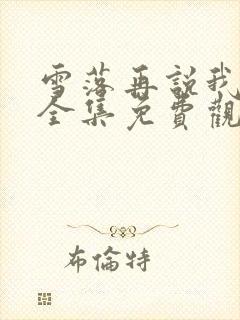 雪落再説我
全集免費觀
布倫特